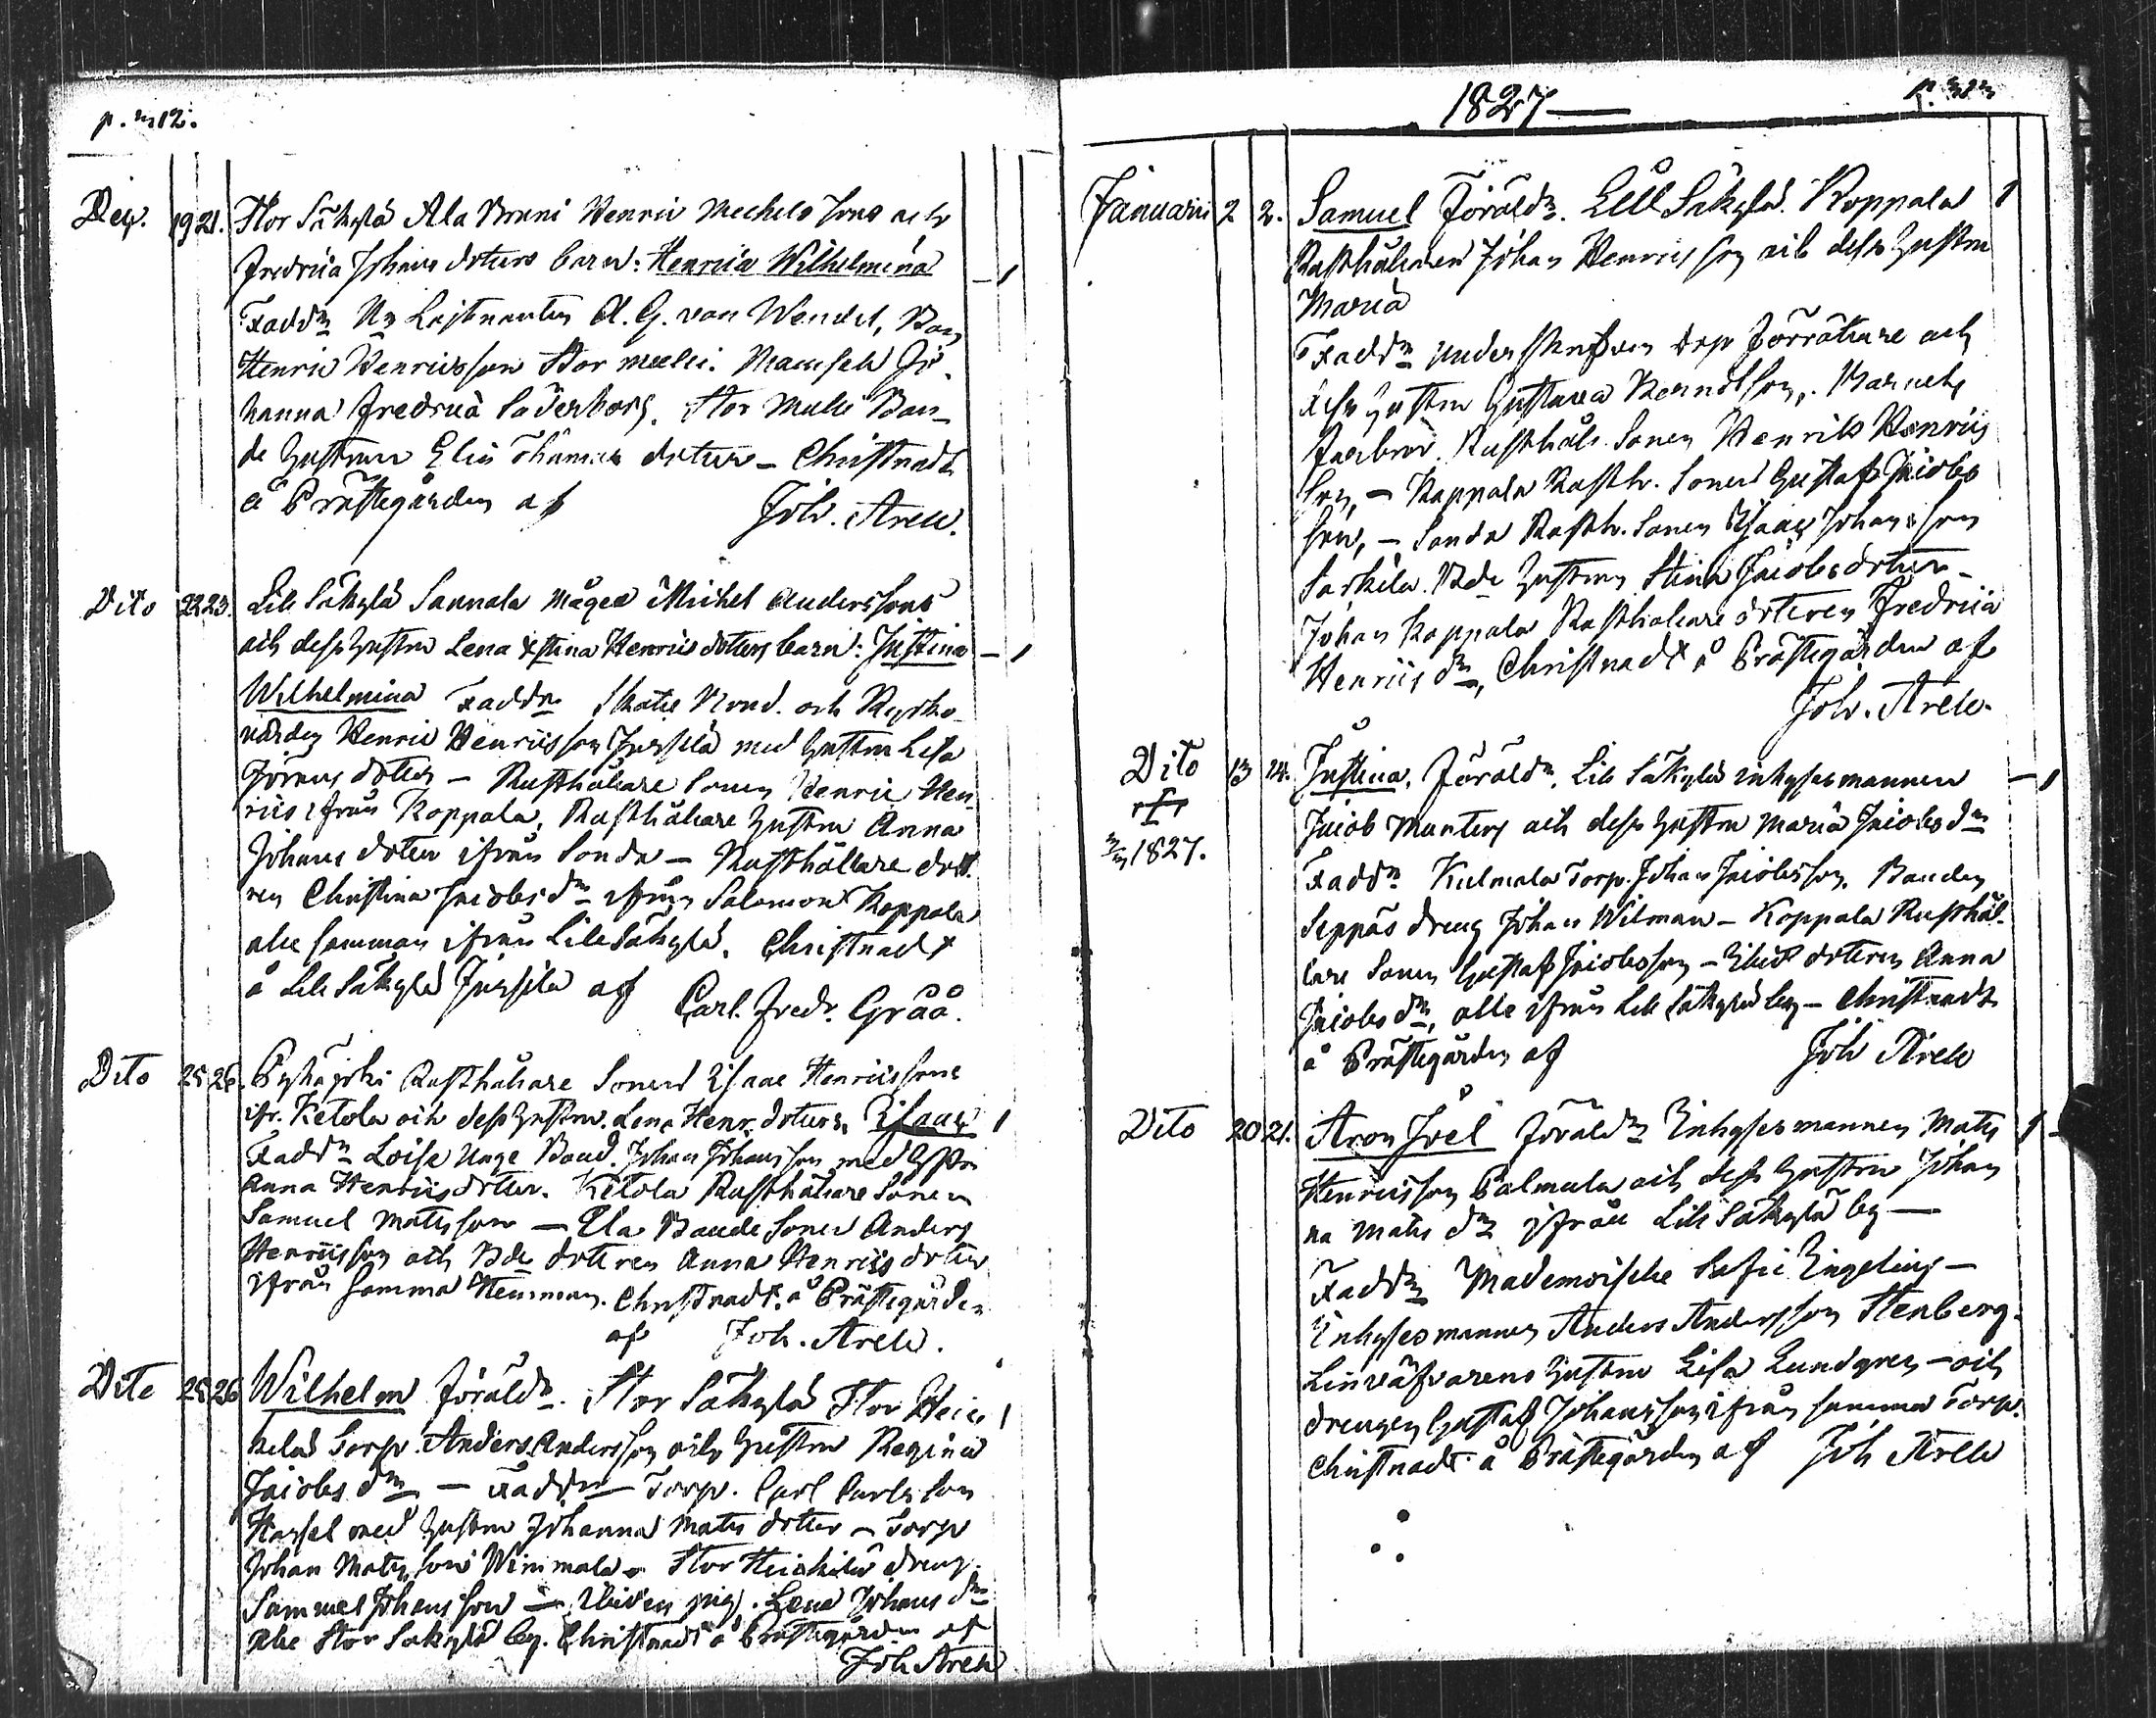 p. m 12.
Dec. 19 21. Stor Säkylä Ala Nonni Henric Michels sons och
Fredrica Johans doters barn: Henrica Wilhelmina
Faddr Lejtnanten A. G. von Wendel, Bon
Henric Henricsson Stor Mälli. Mamsell Jo
hanna Fredrica Söderborg. Stor Mälli Bon-
de hustrun Elin Thomas doter - Christnadt
å Prästegården af Joh. Arell.
Dito 22 23. Lill Säkylä Sannala mågen Michel Anderssons
och dess hustru Lena Stina Henrics doters barn: Justina
Wilhelmina Faddr Bond. och Kyrko
värden Henric Henricsson Jussila med hustru Lisa
Jörans doter - Rusthållare Sonen Henric Hen
rics ifrån Koppala, Rusthållare hustru Anna
Johans doter ifrån Sonda - Rusthållare dott.
ren Christina Jacobs dr ifrån Salomon Koppala
alle samman ifrån Lill Säkylä. Christnadt
å Lill Säkylä Jussila af Carl. Fredr. Gråå.
Dito 25 26. Pyhäjoki Rusthållare Sonen Isaac Henricssons
ifr. Ketola och dess hustru Lena Henr. doters. Isaac
Faddr Loise Unge Bond. Johan Johansson med hustru
Anna Henricsdotter. Ketola Rusthållare Sonen
Samuel Matsson - Ela Bonde Sonen Anders
Henricsson och Bde dotteren Anna Henrics doter
ifrån samma Hemman. Christnadt å Prästegården
af Joh. Arell.
Dito 25 26 Wilhelm Föräldr. Stor Säkylä Stor Hei
kilä Torp. Anders Andersson och hustru Regina
Jacobs dr - Faddr Torp. Carl Carlsson
Hassel med hustru Johanna Mats dotter - Torp
Johan Matsson Winimala - Stor Heickilä dreng
Samuel Johansson - pig. Lena Johans dr
alle Stor Säkylä by. Christnadt å Prästegården af
Joh Arell
1827
Januarii 2 2. Samuel Föräldr. Lill Säkylä Koppala
Rusthållaren Johan Henricsson och dess hustru
Maria
Faddr Underskrefven Förrättare och
dess hustru Gustava Berndtson. Barnets
Farbror. Rusthåll. Sonen Henrik Henrics
son, - Koppala Rusth. Sonen Gustaf Jacobs
son, - Sonda Rusth. Sonen Isaac Johansson
Särkilä Bde hustrun Stina Jacobsdoter -
Johan Koppala Rusthållare dotteren Fredrica
Henrics dr, Christnadt å Prästegården af
Joh. Arell.
Dito 13 14. Justina, Föräldr. Lill Säkylä inhysesmannen
1827. Jacob Munter och dess hustru Maria Jacobs dr
Faddr Kulmala Torp. Johan Jacobsson. Bonden
Seppäs dreng Johan Wilman - Koppala Rusthål
lare Sonen Gustaf Jacobsson - dotteren Anna
Jacobs dr, alle ifrån Lill Säkylä by - Christnadt
å Prästegården af Joh Arell
Dito 20 21. Aron Joel Föräldr Inhysesmannen Mats
Henricsson Palmula och dess hustru Johan
na Mats dr ifrån Lill Säkylä by -
Faddr Mademoiselle Sofie Ingelius -
Inhysesmannen Anders Andersson Stenberg.
Linwäfvarens hustru Lisa Lundgren - och
drengen Gustaf Johansson ifrån samma Torp.
Christnadt å Prästegården af Joh Arell